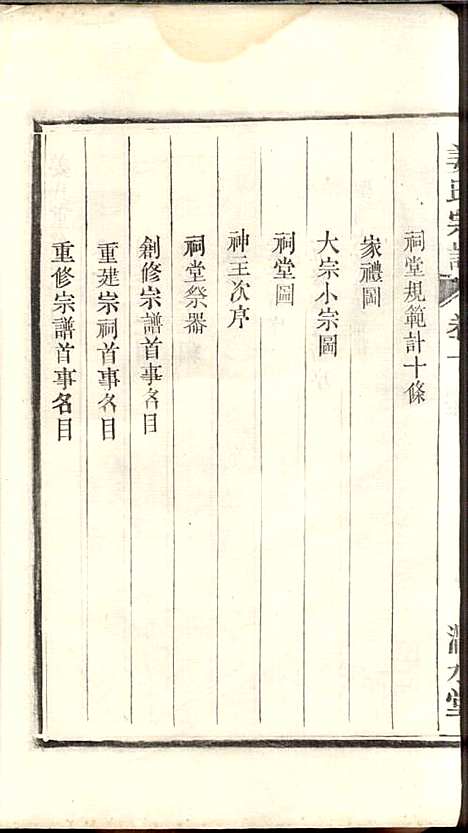 祠堂規範計十條
家禮圖
大宗小宗圖
祠堂圖
神主次序
祠堂祭器
創修宗譜首事名目
重建宗祠首事名目
重修宗譜首事名目